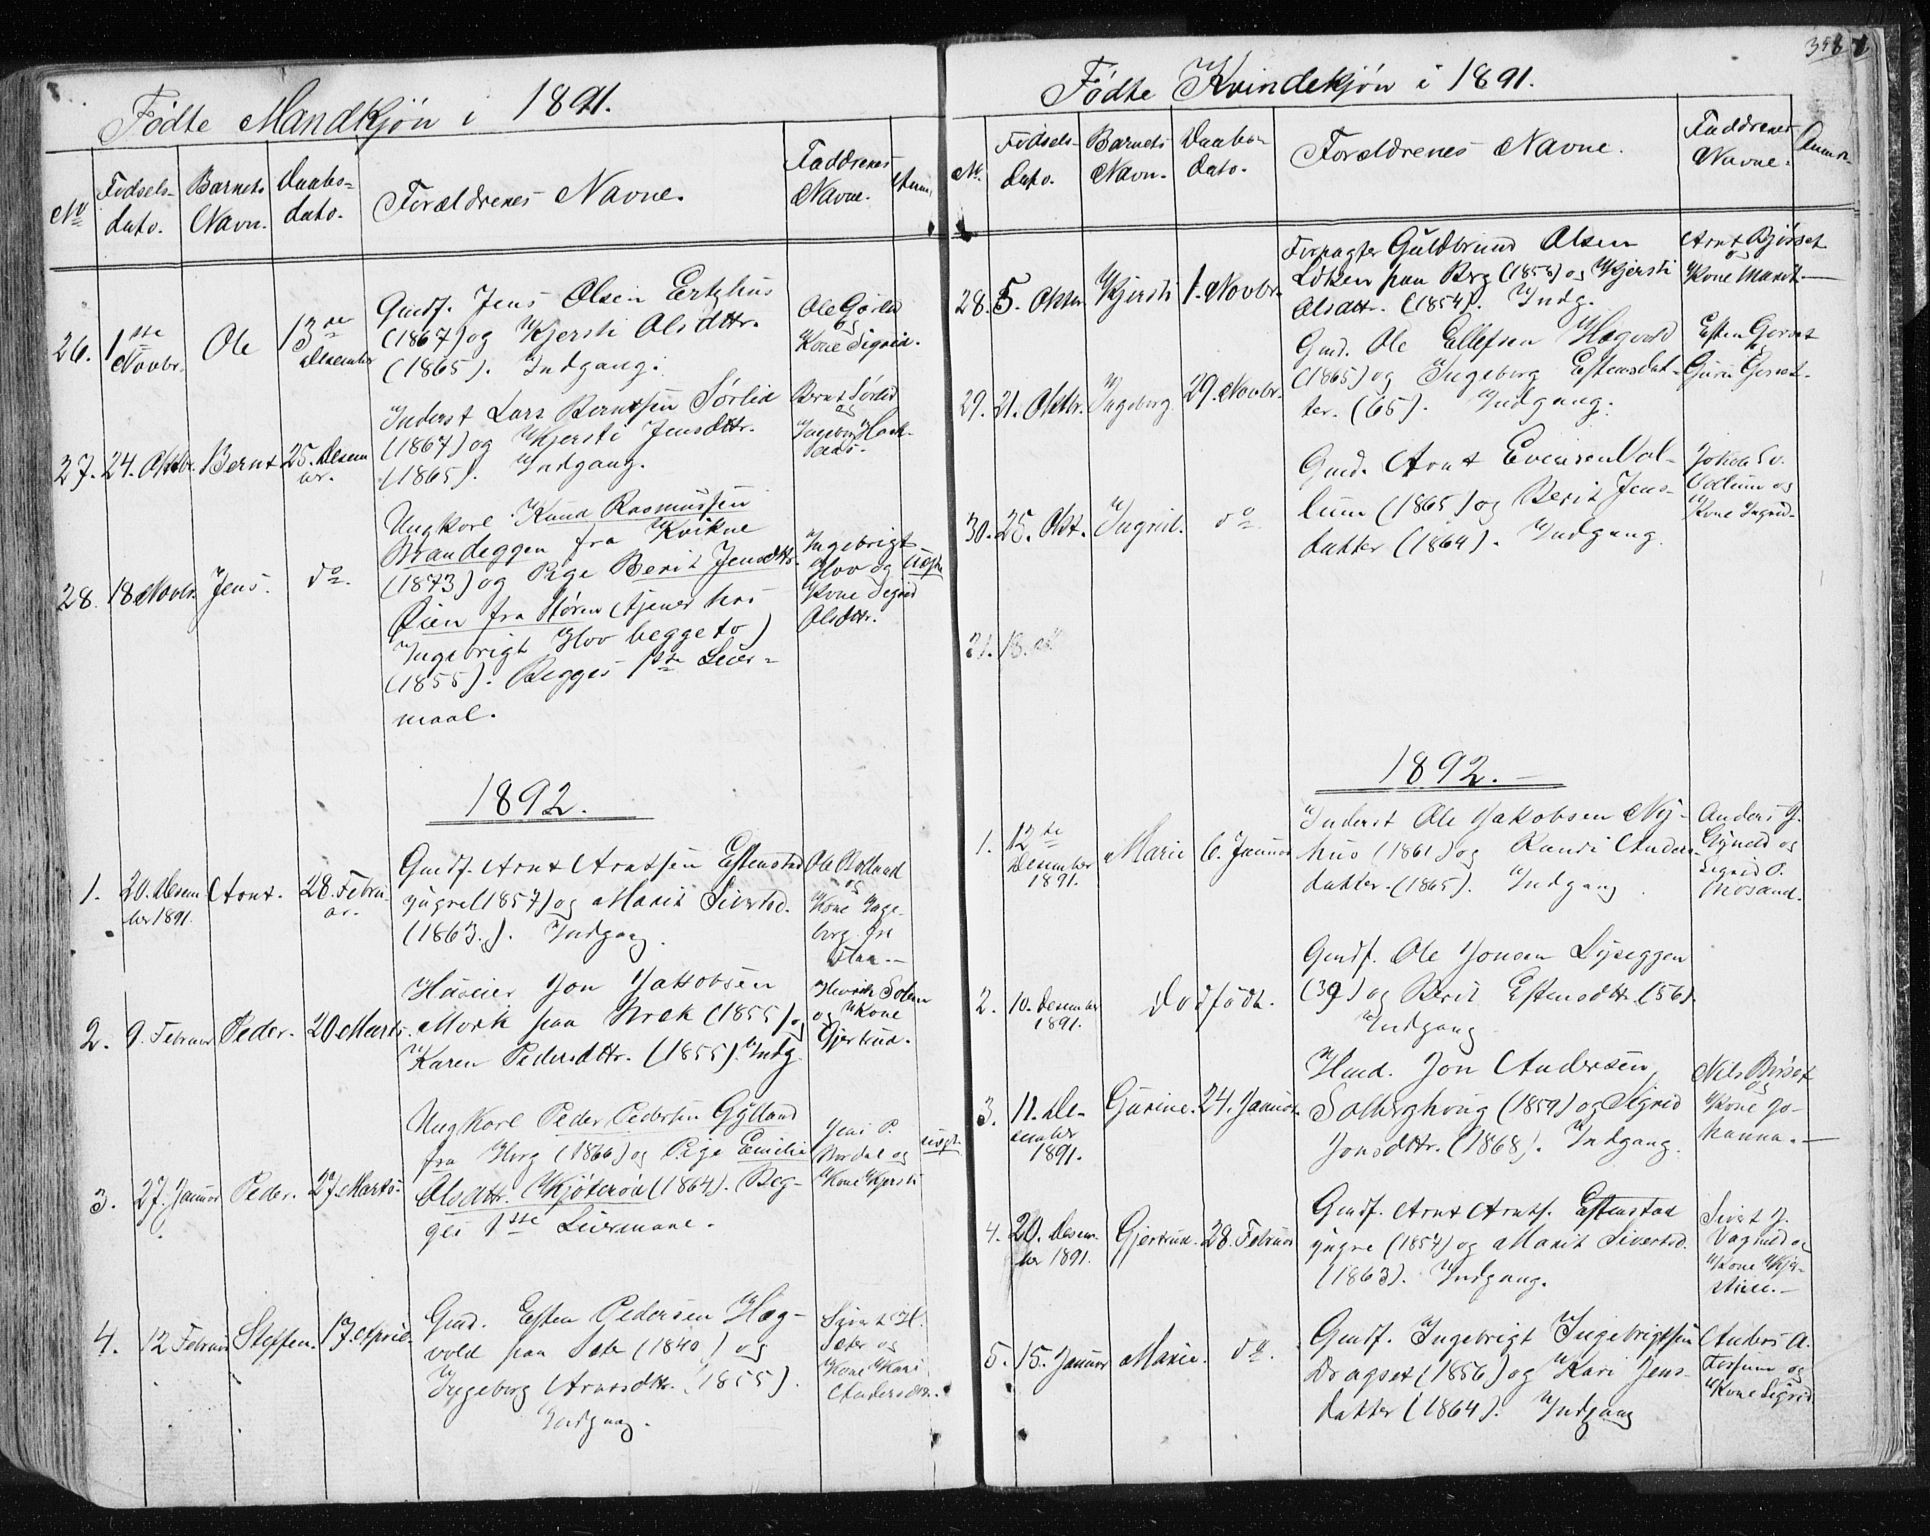 Fødte Mandkjøn i 1891.
No
Fødsels-
dato.
Barnets
Navn.
Daabs-
dato.
Forældrenes Navne.
Faddrenes
Navne.
Anm.
26.
1ste
Novbr.
Ole
13de
Desember
Gmdf. Jens Olsen Ertzhus
(1867) og Kjersti Olsdttr.
(1865). Indgang.
Ole Gorlid
og
Kone Sigrid.
27.
24. Oktbr.
Bernt
25. Desem
br.
Inderst Lars Berntsen Sørlid
(1867) og Kjersti Jensdttr.
(1865). Indgang.
Bernt Sørlid
og
Ingeborg
28.
18 Novbr.
Jens.
do.
Ungkarl Knud Rasmussen
Brandeggen fra Kvikne
(1873) og Pige Berit Jensdttr.
Øien fra Støren (tjener hos
Ingebrigt Hov begge to)
(1855). Begges 1ste Leier-
maal.
Ingebrigt
Hov og
Kone Sigrid
Olsdttr.
uægte
1892.
1.
20. Desem
ber 1891.
Arnt.
28. Febru-
ar.
Gmdf. Arnt Arntsen Estenstad
ygre (1857) og Marit Sivertsd.
(1863.). Indgang.
Ole
og
Kone Inge-
borg fra
2.
9. Februar
Peder.
20 Marts.
Huseier Jon Jakobsen
Mork paa Brek (1855) og
Karen Pedersdttr. (1855). Indg.
Henrik Solem
og Kone
Gjertrud.
3.
27. Januar
Peder.
27. Marts.
Ungkarl Peder Pedersen Gylland
fra Horg (1866) og Pige Emilie
Olsdttr. Kjøterød (1864). Beg-
ges 1ste Leiermaal.
Jens P.
Bordal og
Kone Kjersti
uægt.
4.
12 Februar
Steffen.
17. April.
Gmd. Esten Pedersen Hag-
vold paa Sæter (1840) og
Ingeborg Arntsdttr. (1855).
Indgang.
Sivert H.
Sæter og
Kone Kari
Andersdtr.
358
Fødte Kvindekjøn i 1891.
No.
Fødsels-
dato.
Barnets
Navn.
Daabs-
dato.
Forældrenes Navne.
Faddrenes
Navne.
Anm.
28.
5. Oktbr.
Kjersti
1. Novbr.
Forpagter Guldbrand Olsen
Løkken paa Berg (1858) og Kjersti
Olsdttr. (1854). Indg.
Arnt Bjørset
og
Kone Marit
29.
21. Oktbr.
Ingeborg
29. Novbr.
Gmd. Ole Ellefsen Hagvold
(1865) og Ingeborg Estensdat-
ter. (65). Indgang.
Esten Gorset
og
Guri Gorset.
30.
25. Okt.
Ingrid.
do
Gmd. Arnt Evensen Val-
lum (1865) og Berit Jens-
datter (1864). Indgang.
og
Kone Ingrid
1892.
1.
12te
Desember
1891.
Marie
6. Januar
Inderst Ole Jakobsen Ny-
hus (1861) og Randi Anders-
datter. (1865). Indgang.
Anders J.
og
Sigrid O.
Mosand.
2.
10. Desember
1891.
Dødfødt.
Gmdf. Ole Jonsen Lyseggen
(39) og Berit Estensdttr. (56)
Indgang
3.
11. De-
sember
1891.
Gurine.
24. Januar
Hmd. Jon Andersen
Solberghoug (1859) og Sigrid
Jonsdttr. (1868). Indgang.
Nils Birset
og
Kone Jo-
hanna.
4.
20. Desem-
ber 1891.
Gjertrud.
28. Februar
Gmdf. Arnt Arntsf. Estenstad
ygre (1857) og Marit Sivertsd.
(1863). Indgang.
Sivert J.
Vagnild og
Kone Kjer-
stine.
5.
15. Januar
Marie.
do.
Gmdf. Ingebrigt Ingebrigtsen
Dragset (1856) og Kari Jens-
datter (1864). Indgang
Anders A.
Fossum og
Kone Sigrid